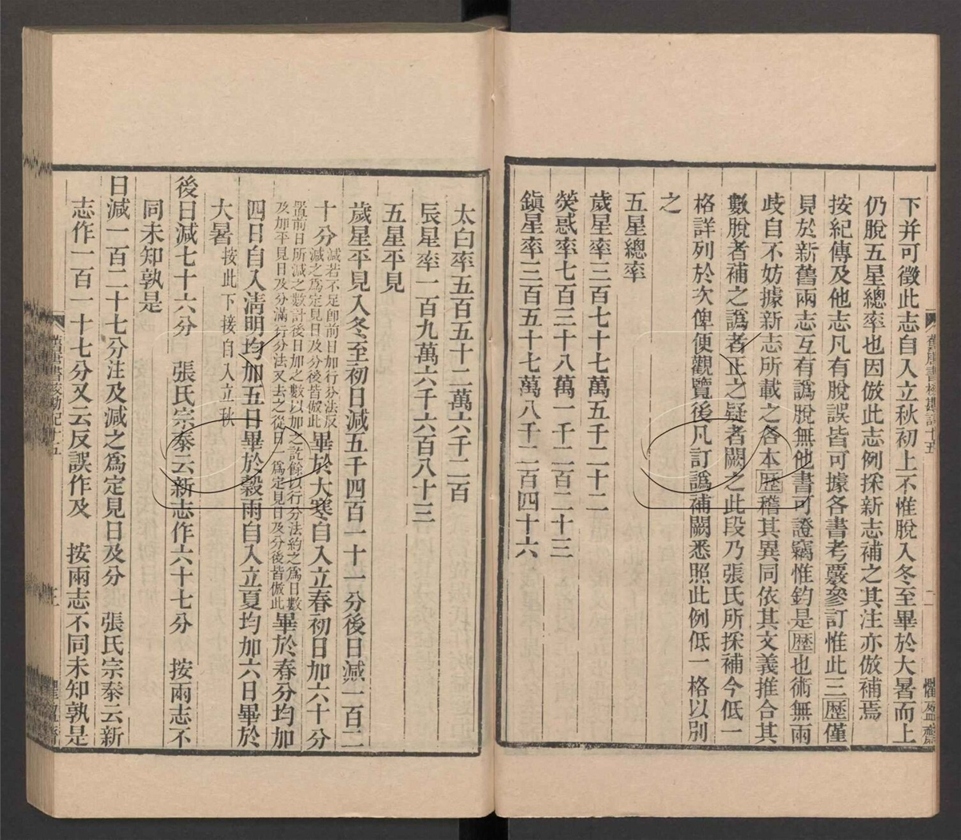 下并可徵此志自入立秋初上不惟脫入冬至畢於大暑而上
仍脫五星總率也因倣此志例採新志補之其注亦倣補焉
按紀傳及他志凡有脫誤皆可據各書考覈參訂惟此三歷僅
見於新舊兩志互有譌脫無他書可證竊惟鈞是歷也術無兩
歧自不妨據新志所載之各本歷稽其異同依其文義推合其
數脫者補之譌者正之疑者闕之此段乃張氏所採補今低一
格詳列於次俾便觀覽後凡訂譌補闕悉照此例低一格以別
之
五星總率
歲星率三百七十七萬五千二十二
熒惑率七百三十八萬一千二百二十三
鎭星率三百五十七萬八千二百四十六
太白率五百五十二萬六千二百
辰星率一百九萬六千六百八十三
五星平見
歲星平見入冬至初日減五千四百一十一分後日減一百二
十分減若不足卽前日加行分法反減之爲定見日及分後皆倣此畢於大寒自入立春初日加六十分
置前日所減之數計後日加之數以加之訖餘以行分法約之爲日數及加平見日及分滿行分法又去之從日一爲定見日及分後皆倣此畢於春分均加
四日自入淸明均加五日畢於穀雨自入立夏均加六日畢於
大暑按此下接自入立秋
後日減七十六分 張氏宗泰云新志作六十七分 按兩志不
同未知孰是
日減一百二十七分注及減之爲定見日及分 張氏宗泰云新
志作一百一十七分又云反誤作及 按兩志不同未知孰是
舊唐書校勘記十五
懼盈齋